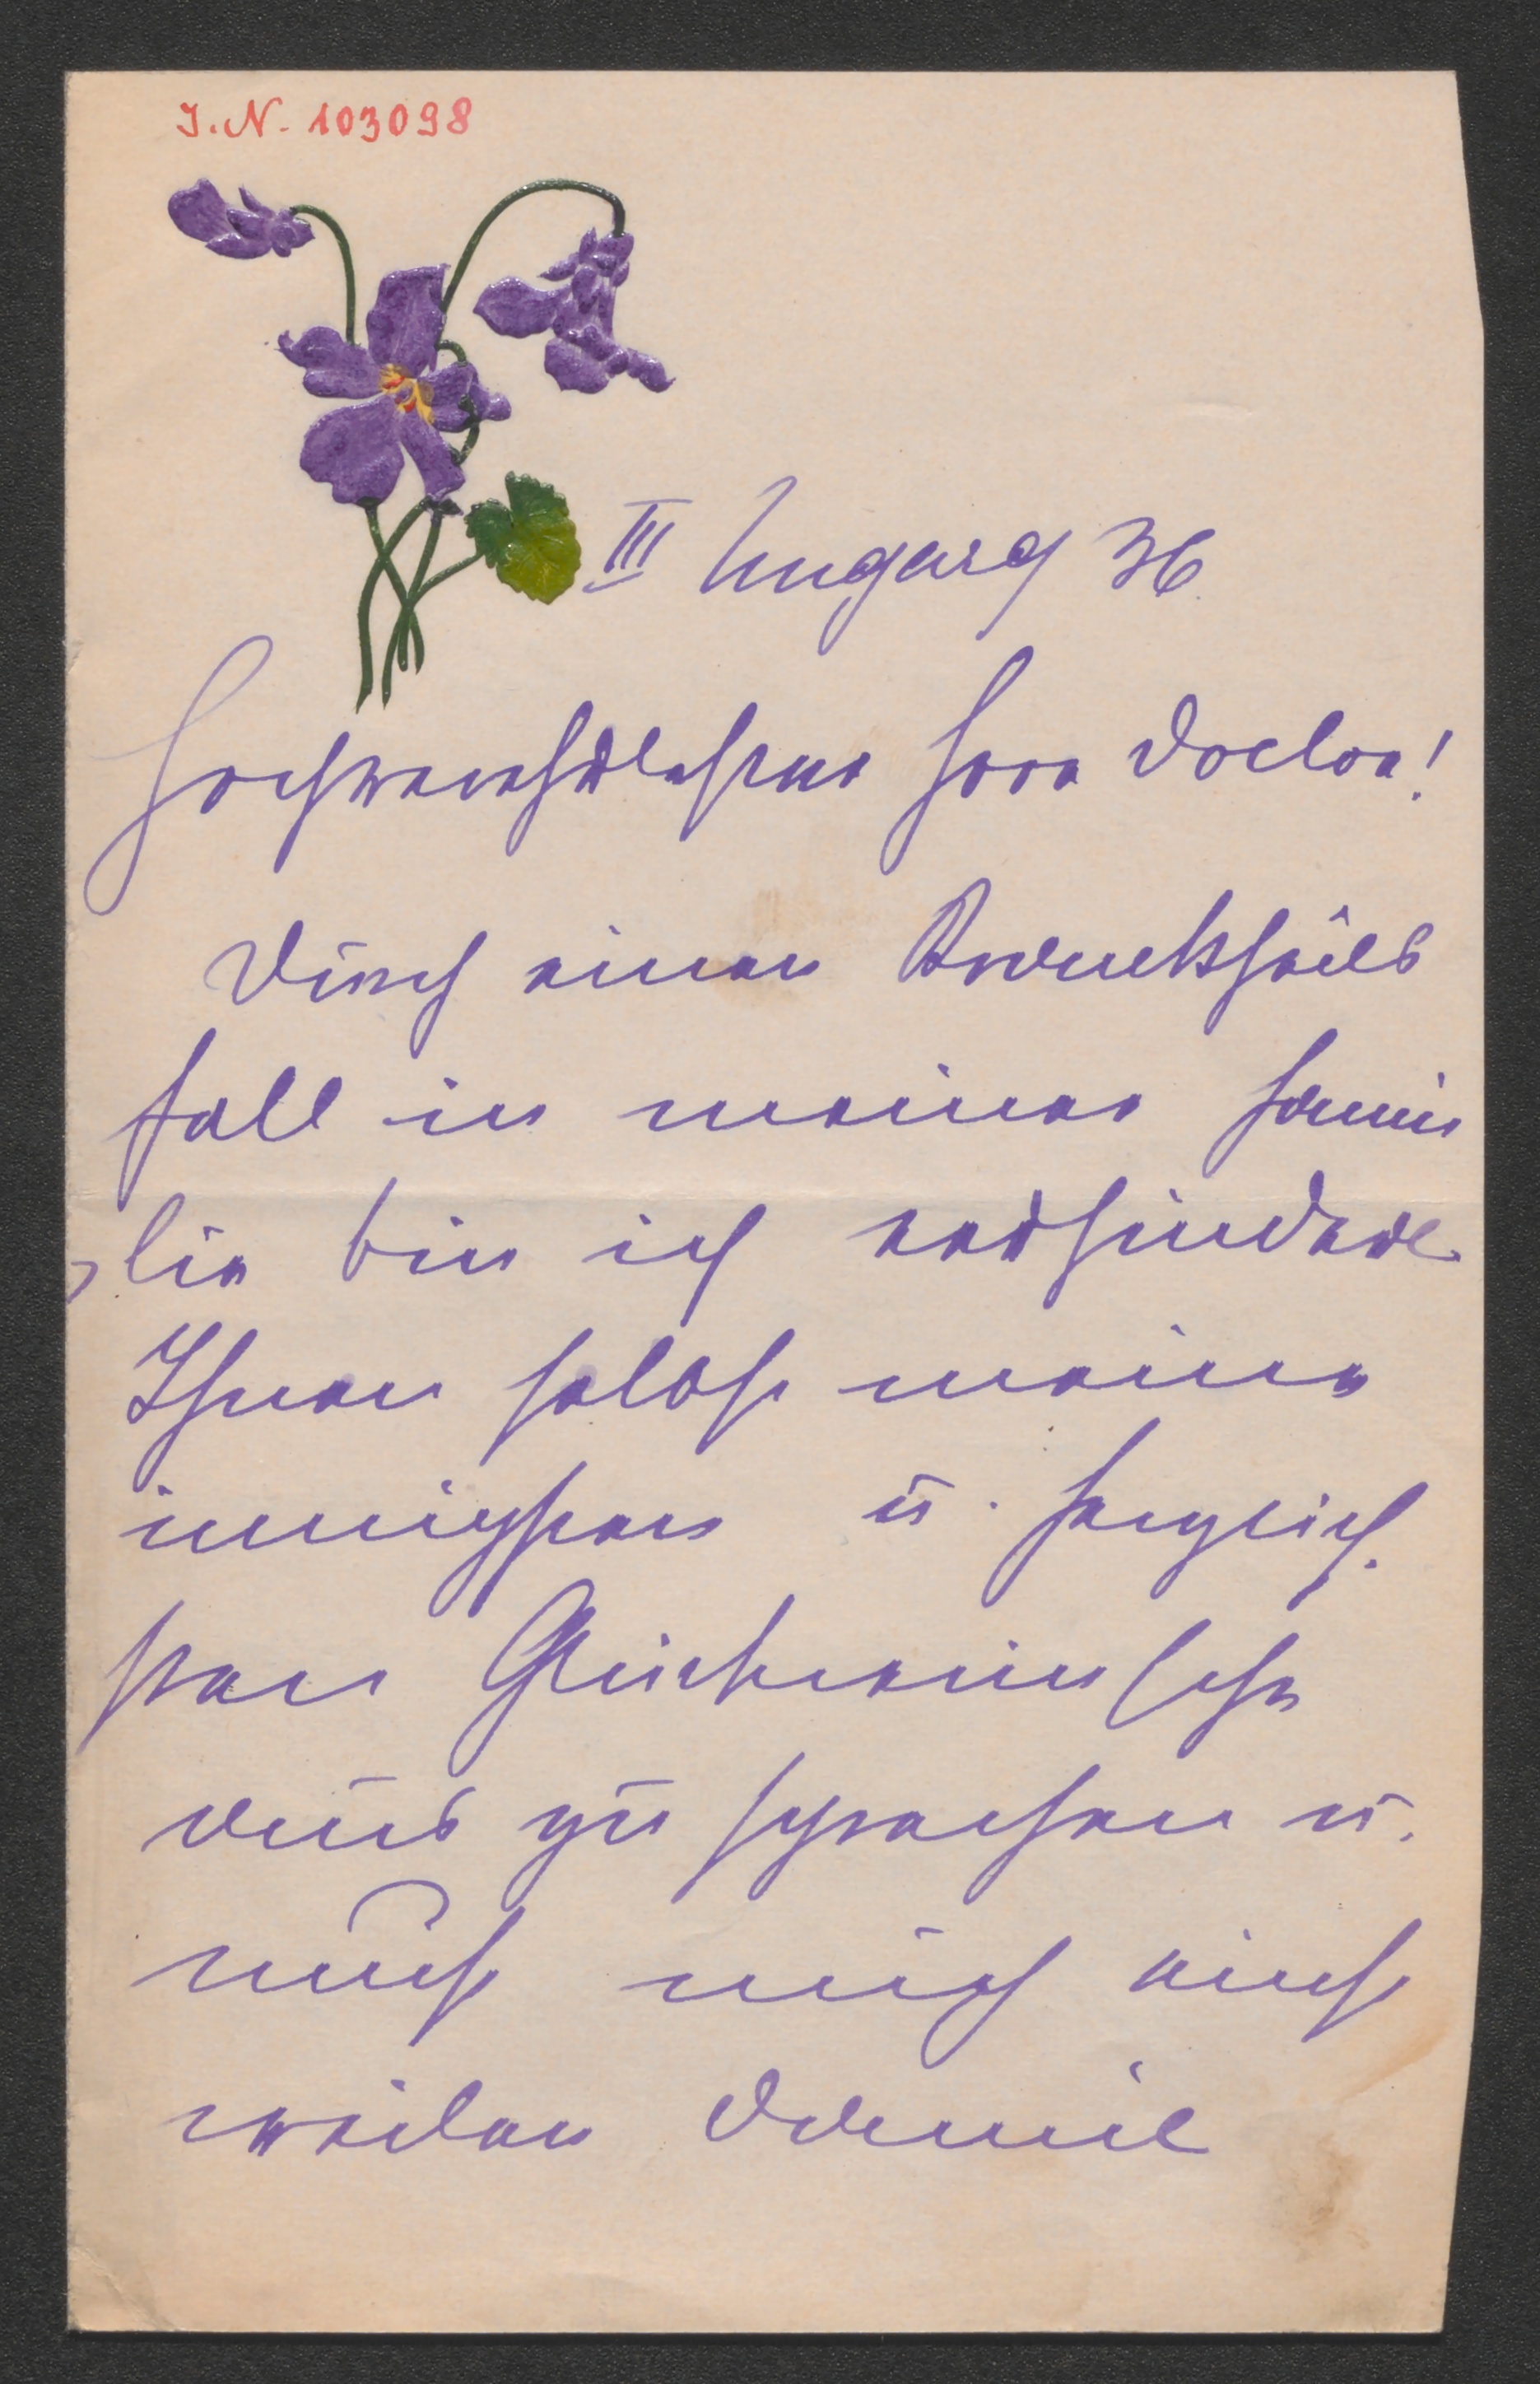 I.N. 103098
III Ungarg 36
Hochverehrtester Herr Doctor!
Durch einen Krankheits
fall in meiner Fami
lie bin ich verhindert
Ihnen selbst meine
innigsten u. herzlich
sten Glückwünsche
aus zu sprechen u.
muß mich einst
weilen damit